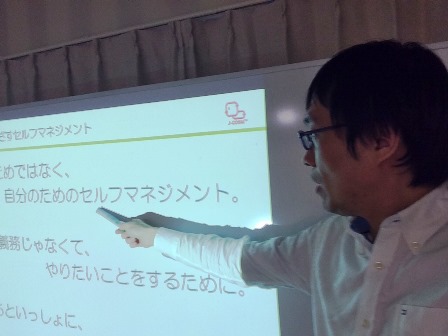 だすセルフマネジメント
ためではなく、
自分のためのセルフマネジメント。
義務じゃなくて、
やりたいことをするために。
といっしょに、